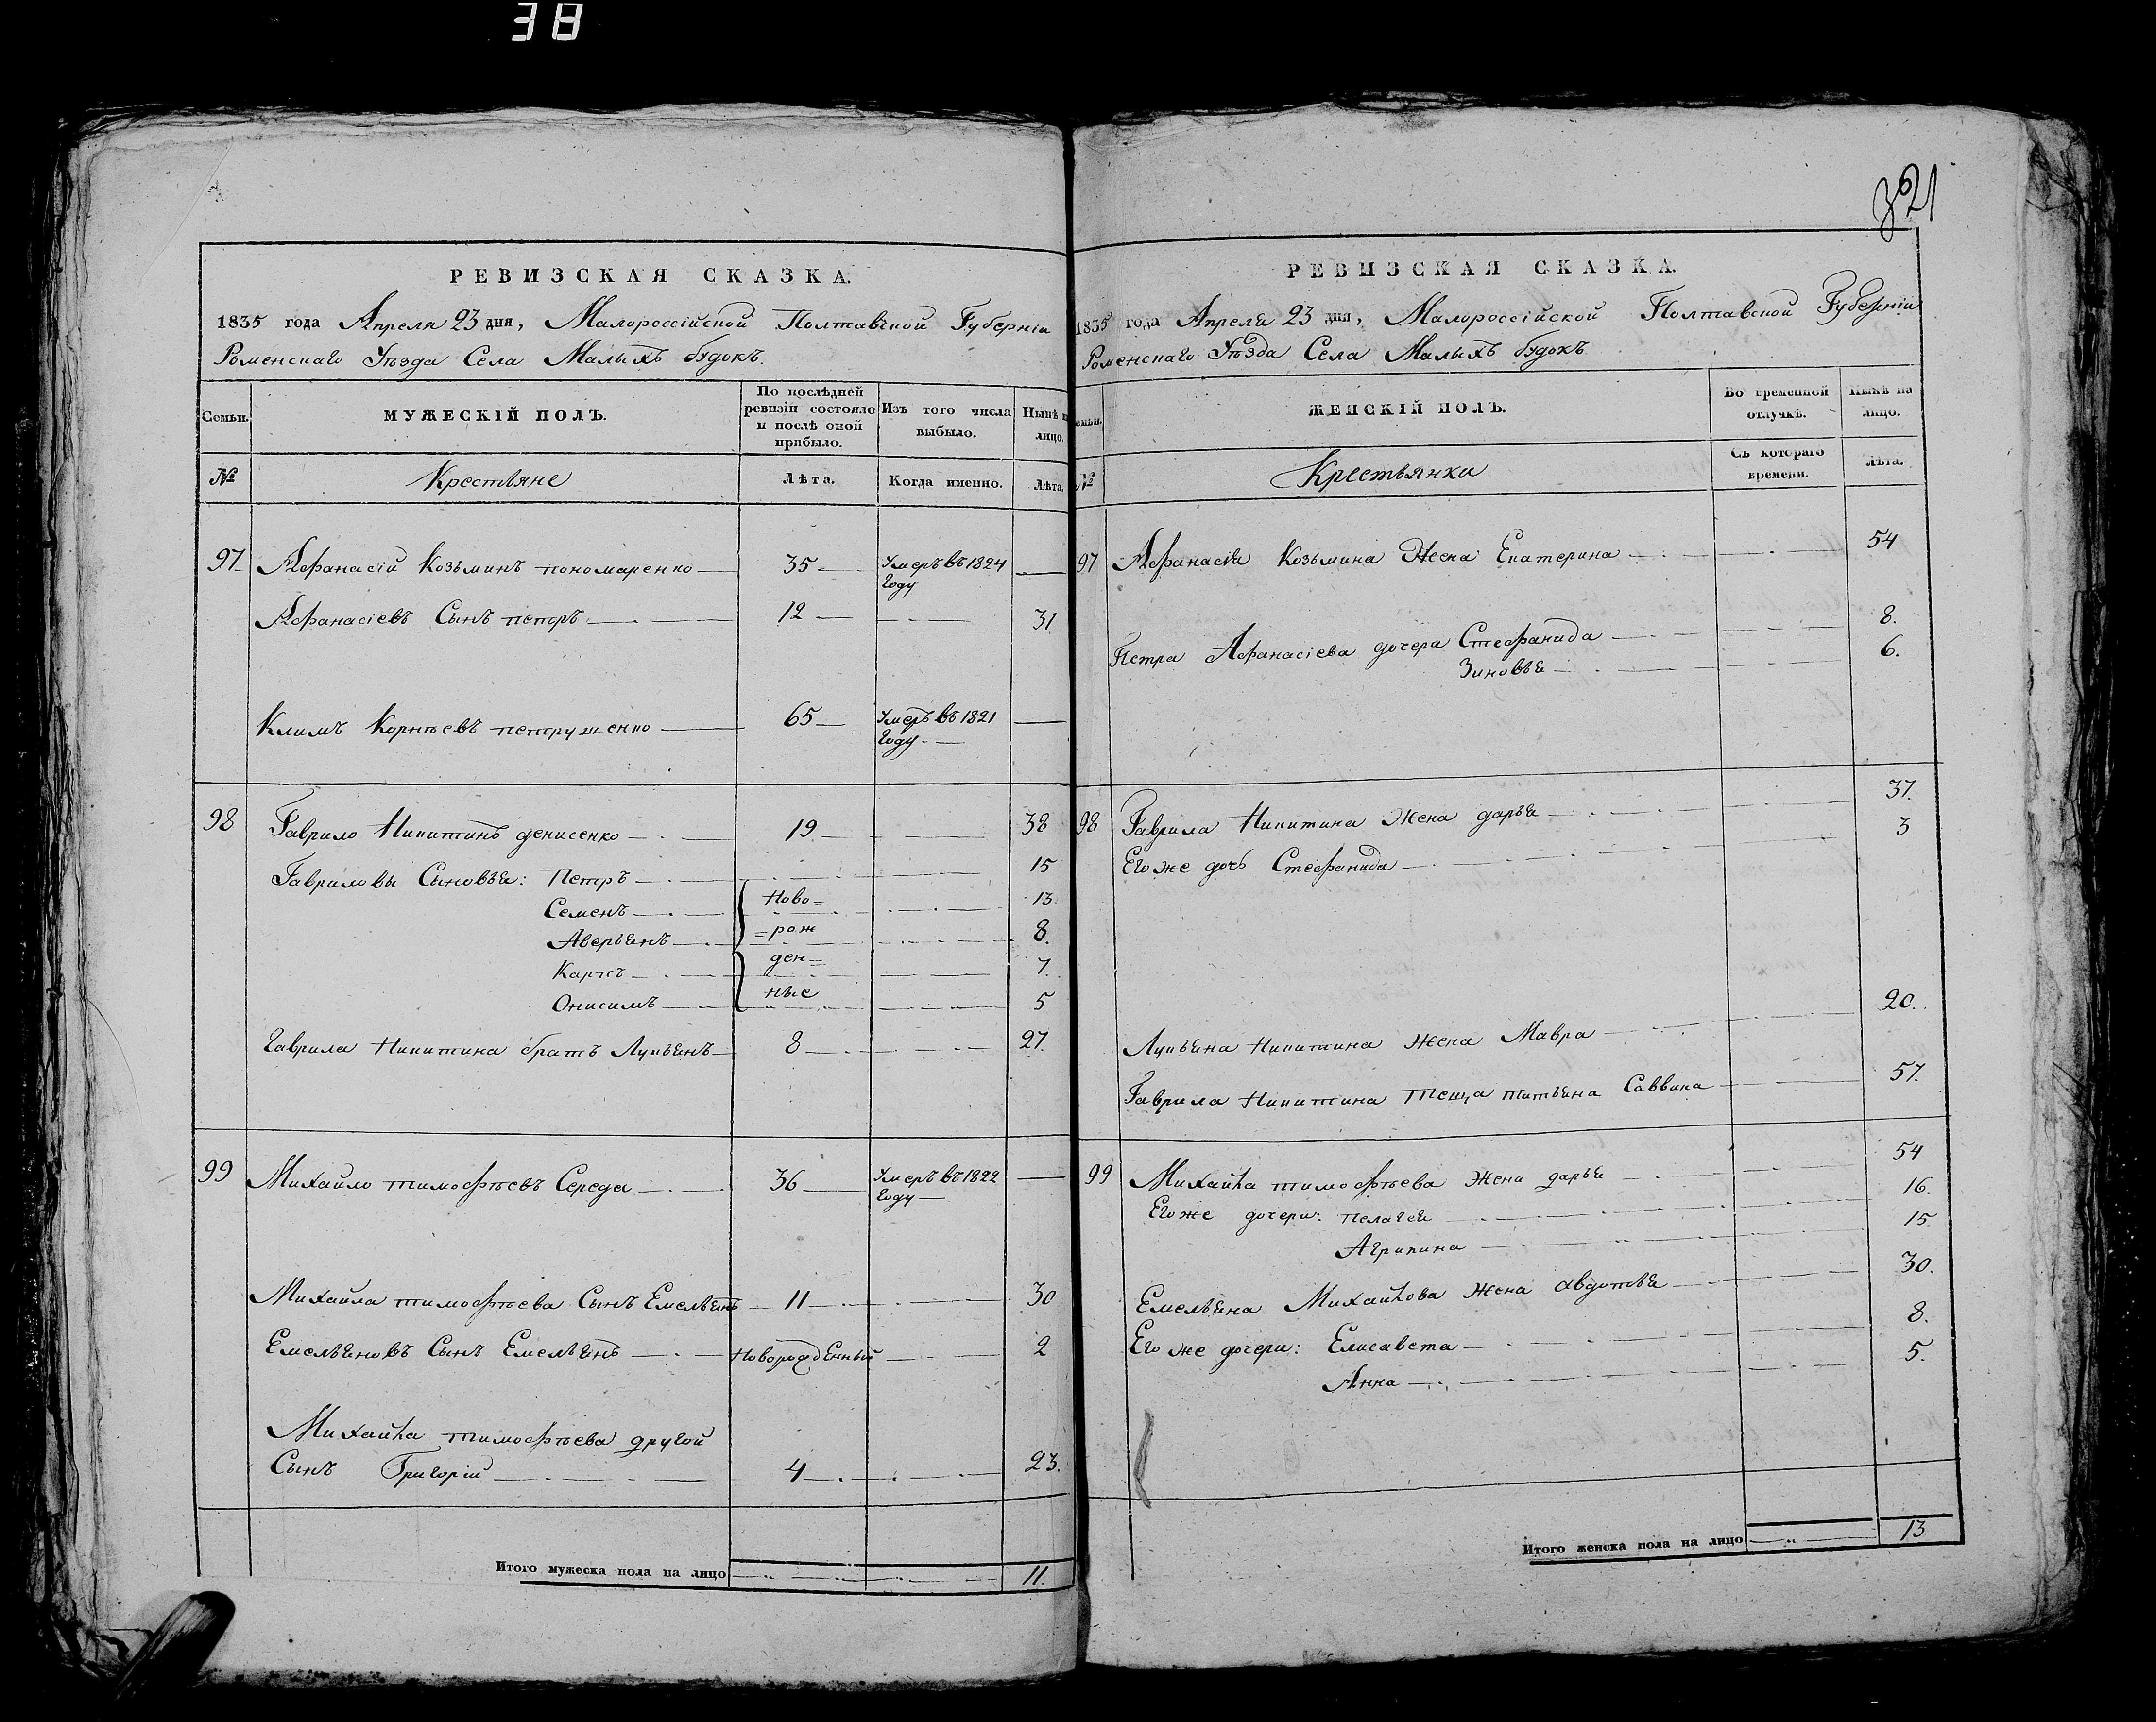 38
321
РЕВИЗСКАЯ СКАЗКА.
1835 года Апреля 23 дня, Малороссійской Полтавской Губерніи
Роменскаго Уѣзда Села Малыхъ будокъ.
Семьи. МУЖЕСКІЙ ПОЛЪ. По послѣдней ревизіи состояло и послѣ оной прибыло. Изъ того числа выбыло. Нынѣ на лицо.
№ Крестьяне Лѣта. Когда именно. Лѣта.
97 Афанасій Козьминъ пономаренко 35 Умеръ въ 1824 Году
Афанасіевъ Сынъ петръ 12 31
Климъ Корнѣевъ петрушенко 65 Умеръ въ 1821 Году
98 Гаврило Никитинъ денисенко 19 38
Гавриловы Сыновья: Петръ 15
Семенъ Ново= 13
Аверьянъ =рож 8.
Карпъ ден= 7
Онисимъ ные 5
Гаврила Никитина братъ Лукьянъ 8 27.
99 Михайло тимофѣевъ Середа 36 Умеръ въ 1822 Году
Михайла тимофѣева Сынъ Емельянъ 11 30
Емельяновъ Сынъ Емельянъ Новорожденный 2
Михайла тимофѣева другой
Сынъ Григорій 4 23.
Итого мужеска пола на лицо 11.
РЕВИЗСКАЯ СКАЗКА.
1835 года Апреля 23 дня, Малороссійской Полтавской Губерніи
Роменскаго Уѣзда Села Малыхъ будокъ
Семьи. ЖЕНСКІЙ ПОЛЪ. Во временной отлучкѣ. Нынѣ на лицо.
№ Крестьянки Съ котораго времени. Лѣта.
97 Афанасія Козьмина Жена Екатерина 54
Петра Афанасіева дочери Стефанида 8.
Зиновья 6.
98 Гаврила Никитина жена дарья 37.
Его же дочь Стефанида 3
Лукьяна Никитина жена Мавра 20.
Гаврила Никитина теща татьяна Саввина 57.
99 Михайла тимофѣева жена дарья 54
Его же дочери: пелагея 16.
Агрипина 15
Емельяна Михайлова жена авдотья 30.
Его же дочери: Елисавета 8.
Анна 5.
Итого женска пола на лицо 13